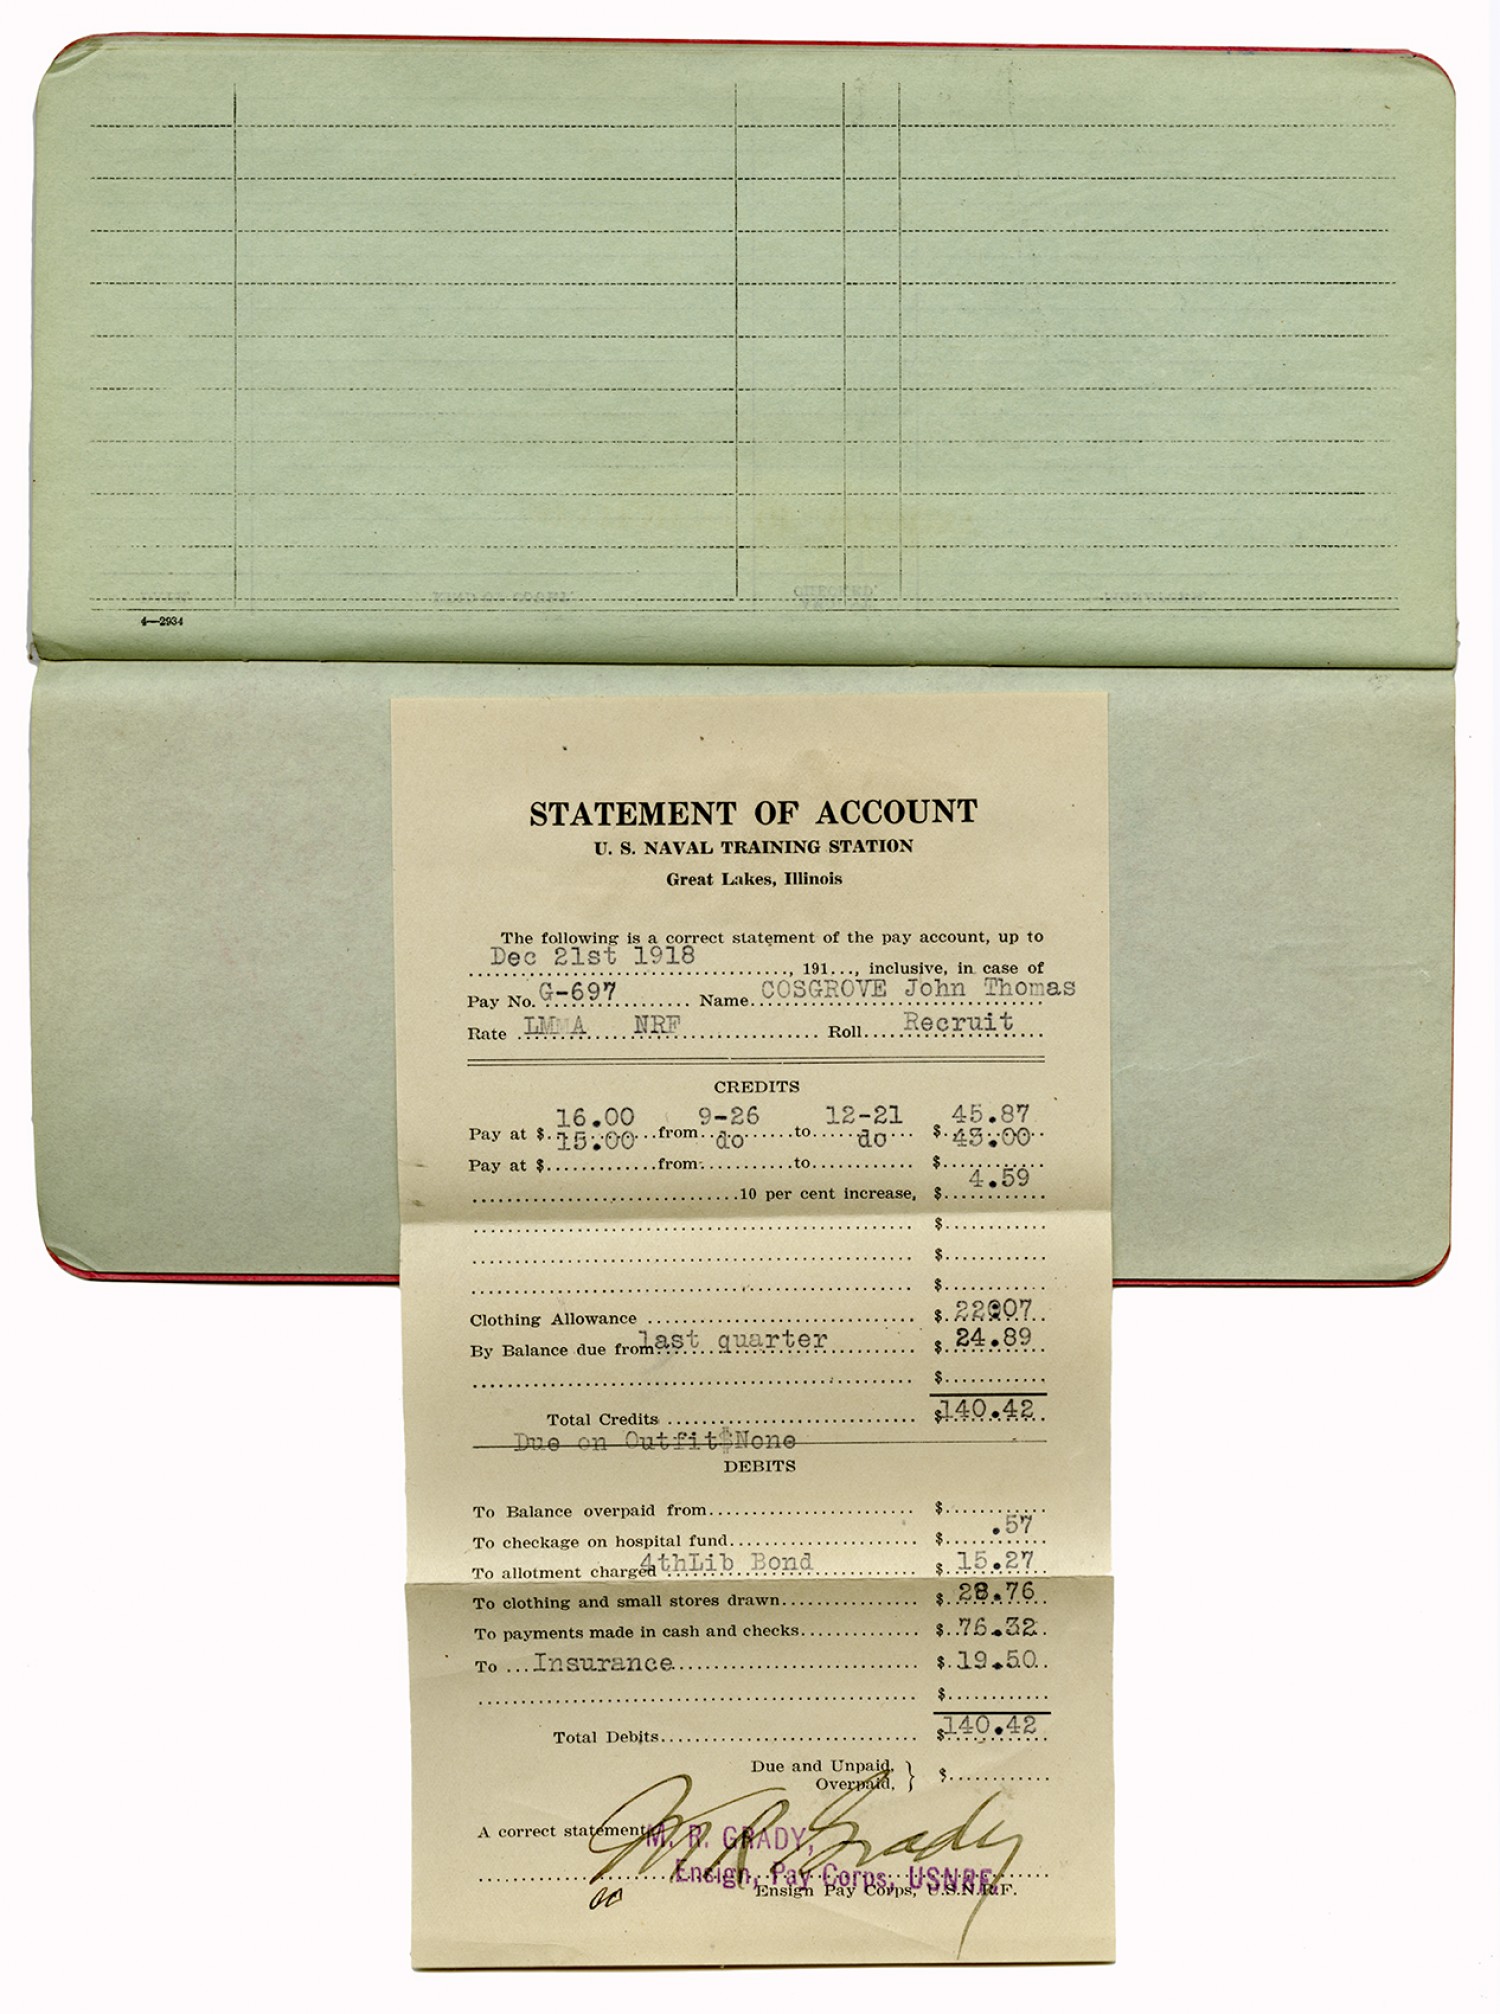 4—2934
STATEMENT OF ACCOUNT
U. S. NAVAL TRAINING STATION
Great Lakes, Illinois
The following is a correct statement of the pay account, up to
Dec 21st 1918, 191..., inclusive, in case of
Pay No. G-697 Name COSGROVE John Thomas
Rate LMMA NRF Roll Recruit
CREDITS
16.00 9-26 12-21 45.87
Pay at $ 15.00 from do to do $ 43.00
Pay at $ from to $
10 per cent increase, $ 4.59
$
$
$
Clothing Allowance $ 22.07
By Balance due from last quarter $ 24.89
$
Total Credits $140.42
Due on Outfit $None
DEBITS
To Balance overpaid from $
To checkage on hospital fund $ .57
To allotment charged 4thLib Bond $ 15.27
To clothing and small stores drawn $ 28.76
To payments made in cash and checks $ 76.32
To ... Insurance $ 19.50
$
Total Debits $140.42
Due and Unpaid,
Overpaid, } $
A correct statement
M R Grady
M. R. GRADY,
Ensign, Pay Corps, USNRF.
Ensign Pay Corps, U.S.N.R.F.